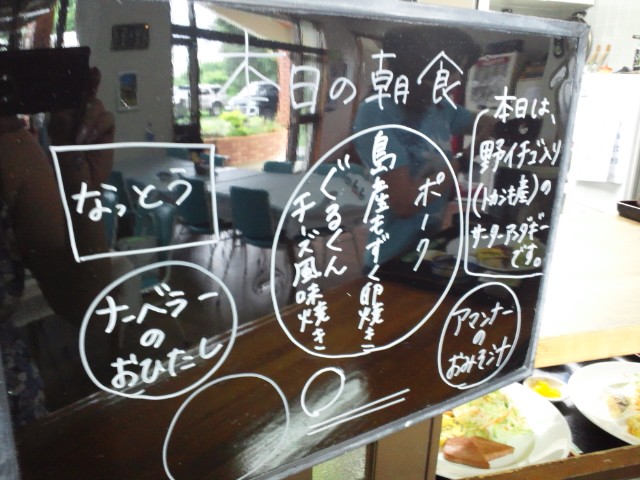 本日の朝食
本日は、
野イチゴ入り
(トカシキ産)の
サーターアンダギー
です。
なっとう
ポーク
島産もずく卵焼き
ぐるくん
チーズ風味焼き
ナーベラー
の
おひたし
アマンナー
の
おみそ汁